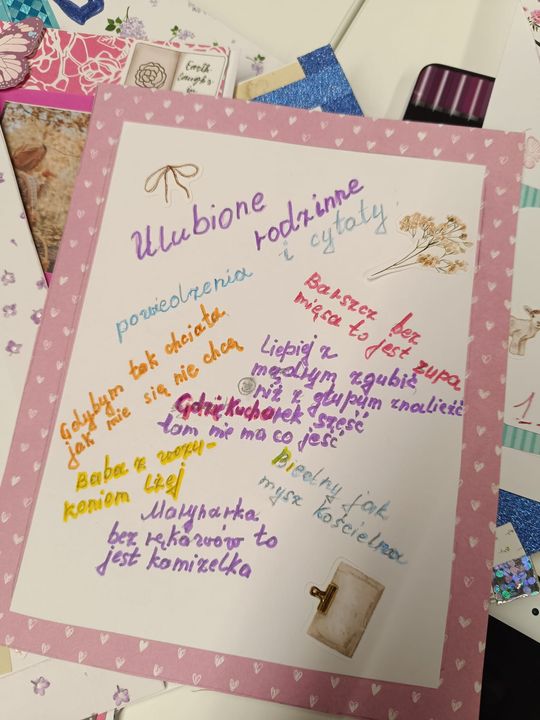 Earth
laughs
in
Ulubione
rodzinne
i cytaty
powiedzenia
Barszcz bez
mięsa to jest zupa
Gdybym tak chciała
jak mie się nie chcą
Liepiej z
mądrym zgubić
niż z głupym znaliezć
Gdzie kucharek sześć
tam nie ma co jeść
Baba z wozy-
koniom lżej
Biedny jak
mysz kościelna
Marynarka
bez rękawów to
jest kamizelka
1